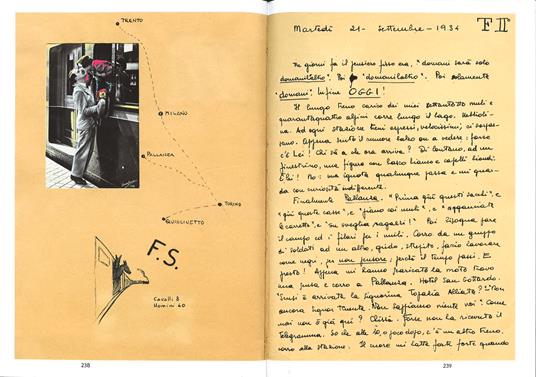 TRENTO
MILANO
PALLANZA
TORINO
QUINCINETTO
F.S.
Cavalli 8
Uomini 40
238
Martedì 21 - settembre - 1934
F II
Tre giorni fa il pensiero fisso era, "domani sarà solo
domanilaltro". Poi "domanilaltro". Poi solamente
"domani". Infine OGGI!
Il lungo treno carico dei miei settantotto muli e
quarantaquattro alpini corre lungo il lago. Rettili-
neo. Ad ogni stazione treni espressi, velocissimi, ci sorpas-
sano. Appena sento il rumore salto su a vedere: forse
c'è Lei! Chi sa a che ora arriva? Di lontano, ad un
finestrino, una figura con basco bianco e capelli biondi.
È lei! No: una ignota qualunque passa e mi guar-
da con curiosità indifferente.
Finalmente Pallanza. "Prima giù questi sacchi", e
"giù queste casse", e "piano coi muli", e "agganciate
le carrette", e "su sveglia ragazzi!" Poi bisogna fare
il campo ed i filari per i muli. Corro da un gruppo
di soldati ad un altro, grido, strepito, faccio lavorare
come negri, per non pensare, perché il tempo passi. E
presto! Appena mi hanno scaricato la moto trovo
una scusa e corro a Pallanza. Hotel San Gottardo.
"Scusi è arrivata la signorina Topazia Alliata?" "Non
ancora signor Tenente. Non sappiamo niente noi". Come
mai non è già qui? Chissà. Forse non ha ricevuto il
telegramma. So che alle 10, o poco dopo, c'è un altro treno.
corro alla stazione. Il cuore mi batte forte forte quando
239